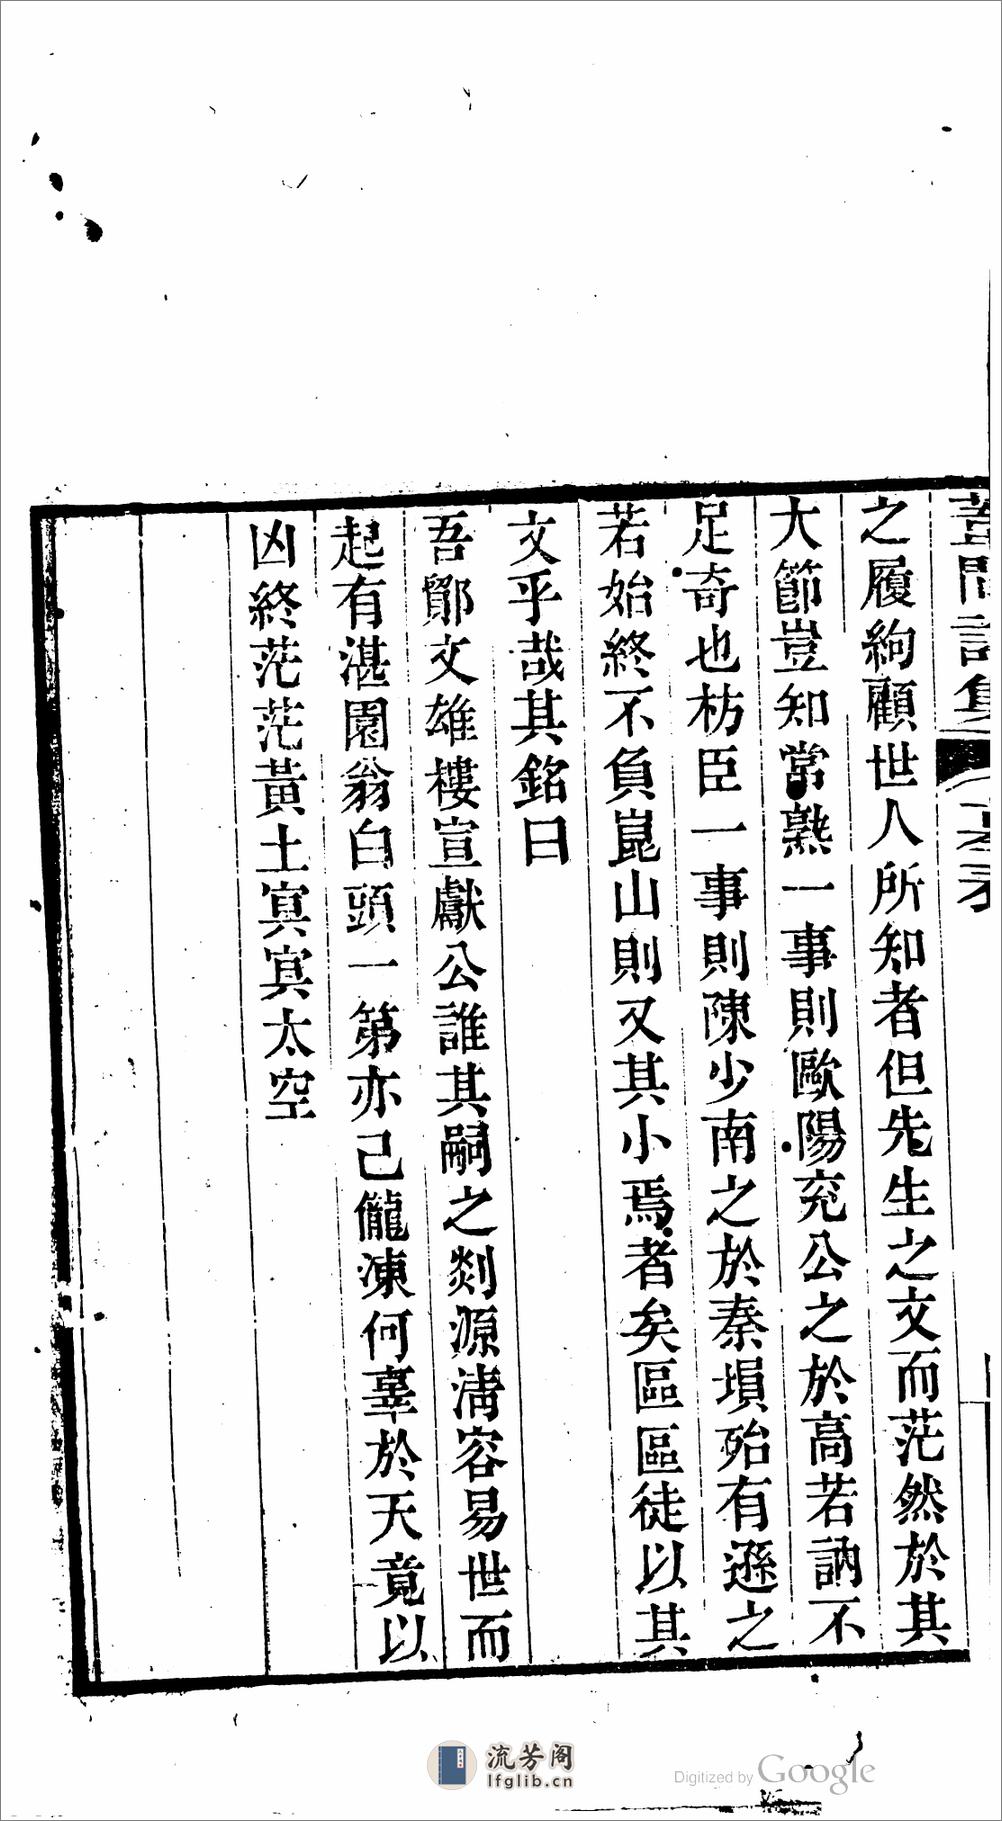 之履絇顧世人所知者但先生之文而茫然於其
大節豈知常熟一事則歐陽兖公之於高若訥不
足奇也枋臣一事則陳少南之於秦塤殆有遜之
若始終不負崑山則又其小焉者矣區區徒以其
文乎哉其銘曰
吾鄮文雄樓宣獻公誰其嗣之剡源淸容易世而
起有湛園翁白頭一第亦已儱涷何辜於天竟以
凶終茫茫黃土冥冥太空
流芳阁
lfglib.cn
Digitized by Google